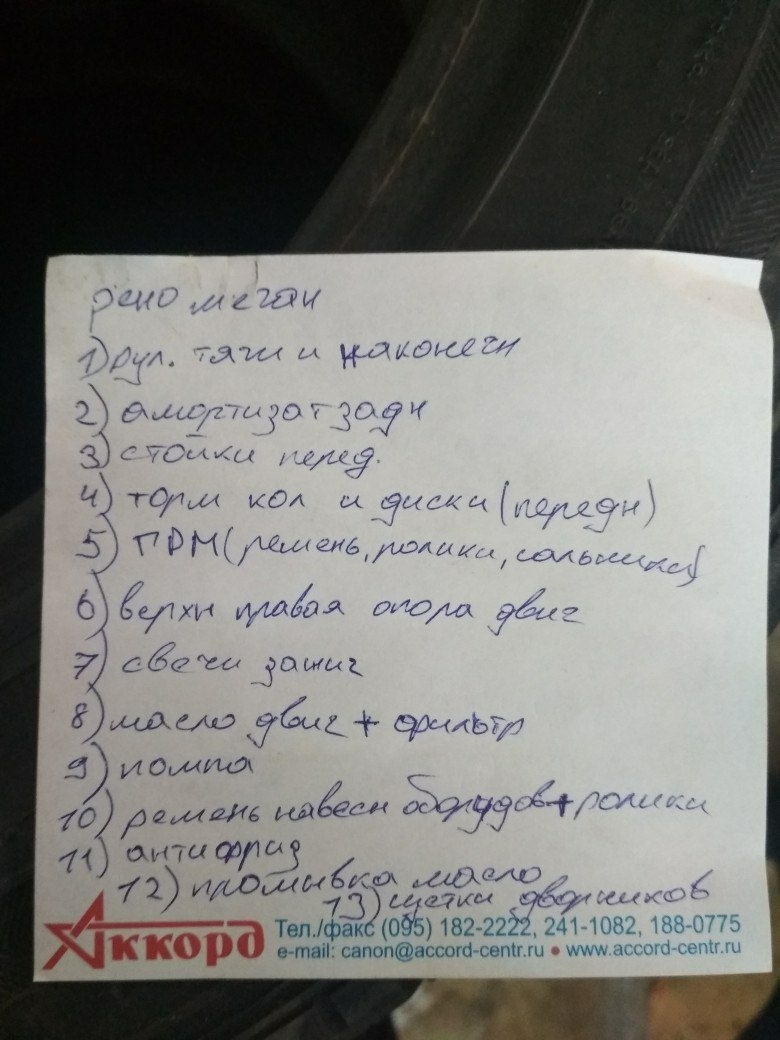 рено меган
1) рул. тяги и наконечн
2) амортизат задн
3) стойки перед.
4) торм кол и диски (передн)
5) ГРМ (ремень, ролики, сальники)
6) верхн правая опора двиг
7) свечи зажиг
8) масло двиг + фильтр
9) помпа
10) ремень навесн оборудов + ролики
11) антифриз
12) промывка масло
13) щетки дворников
Аккорд
Тел./факс (095) 182-2222, 241-1082, 188-0775
e-mail: canon@accord-centr.ru • www.accord-centr.ru